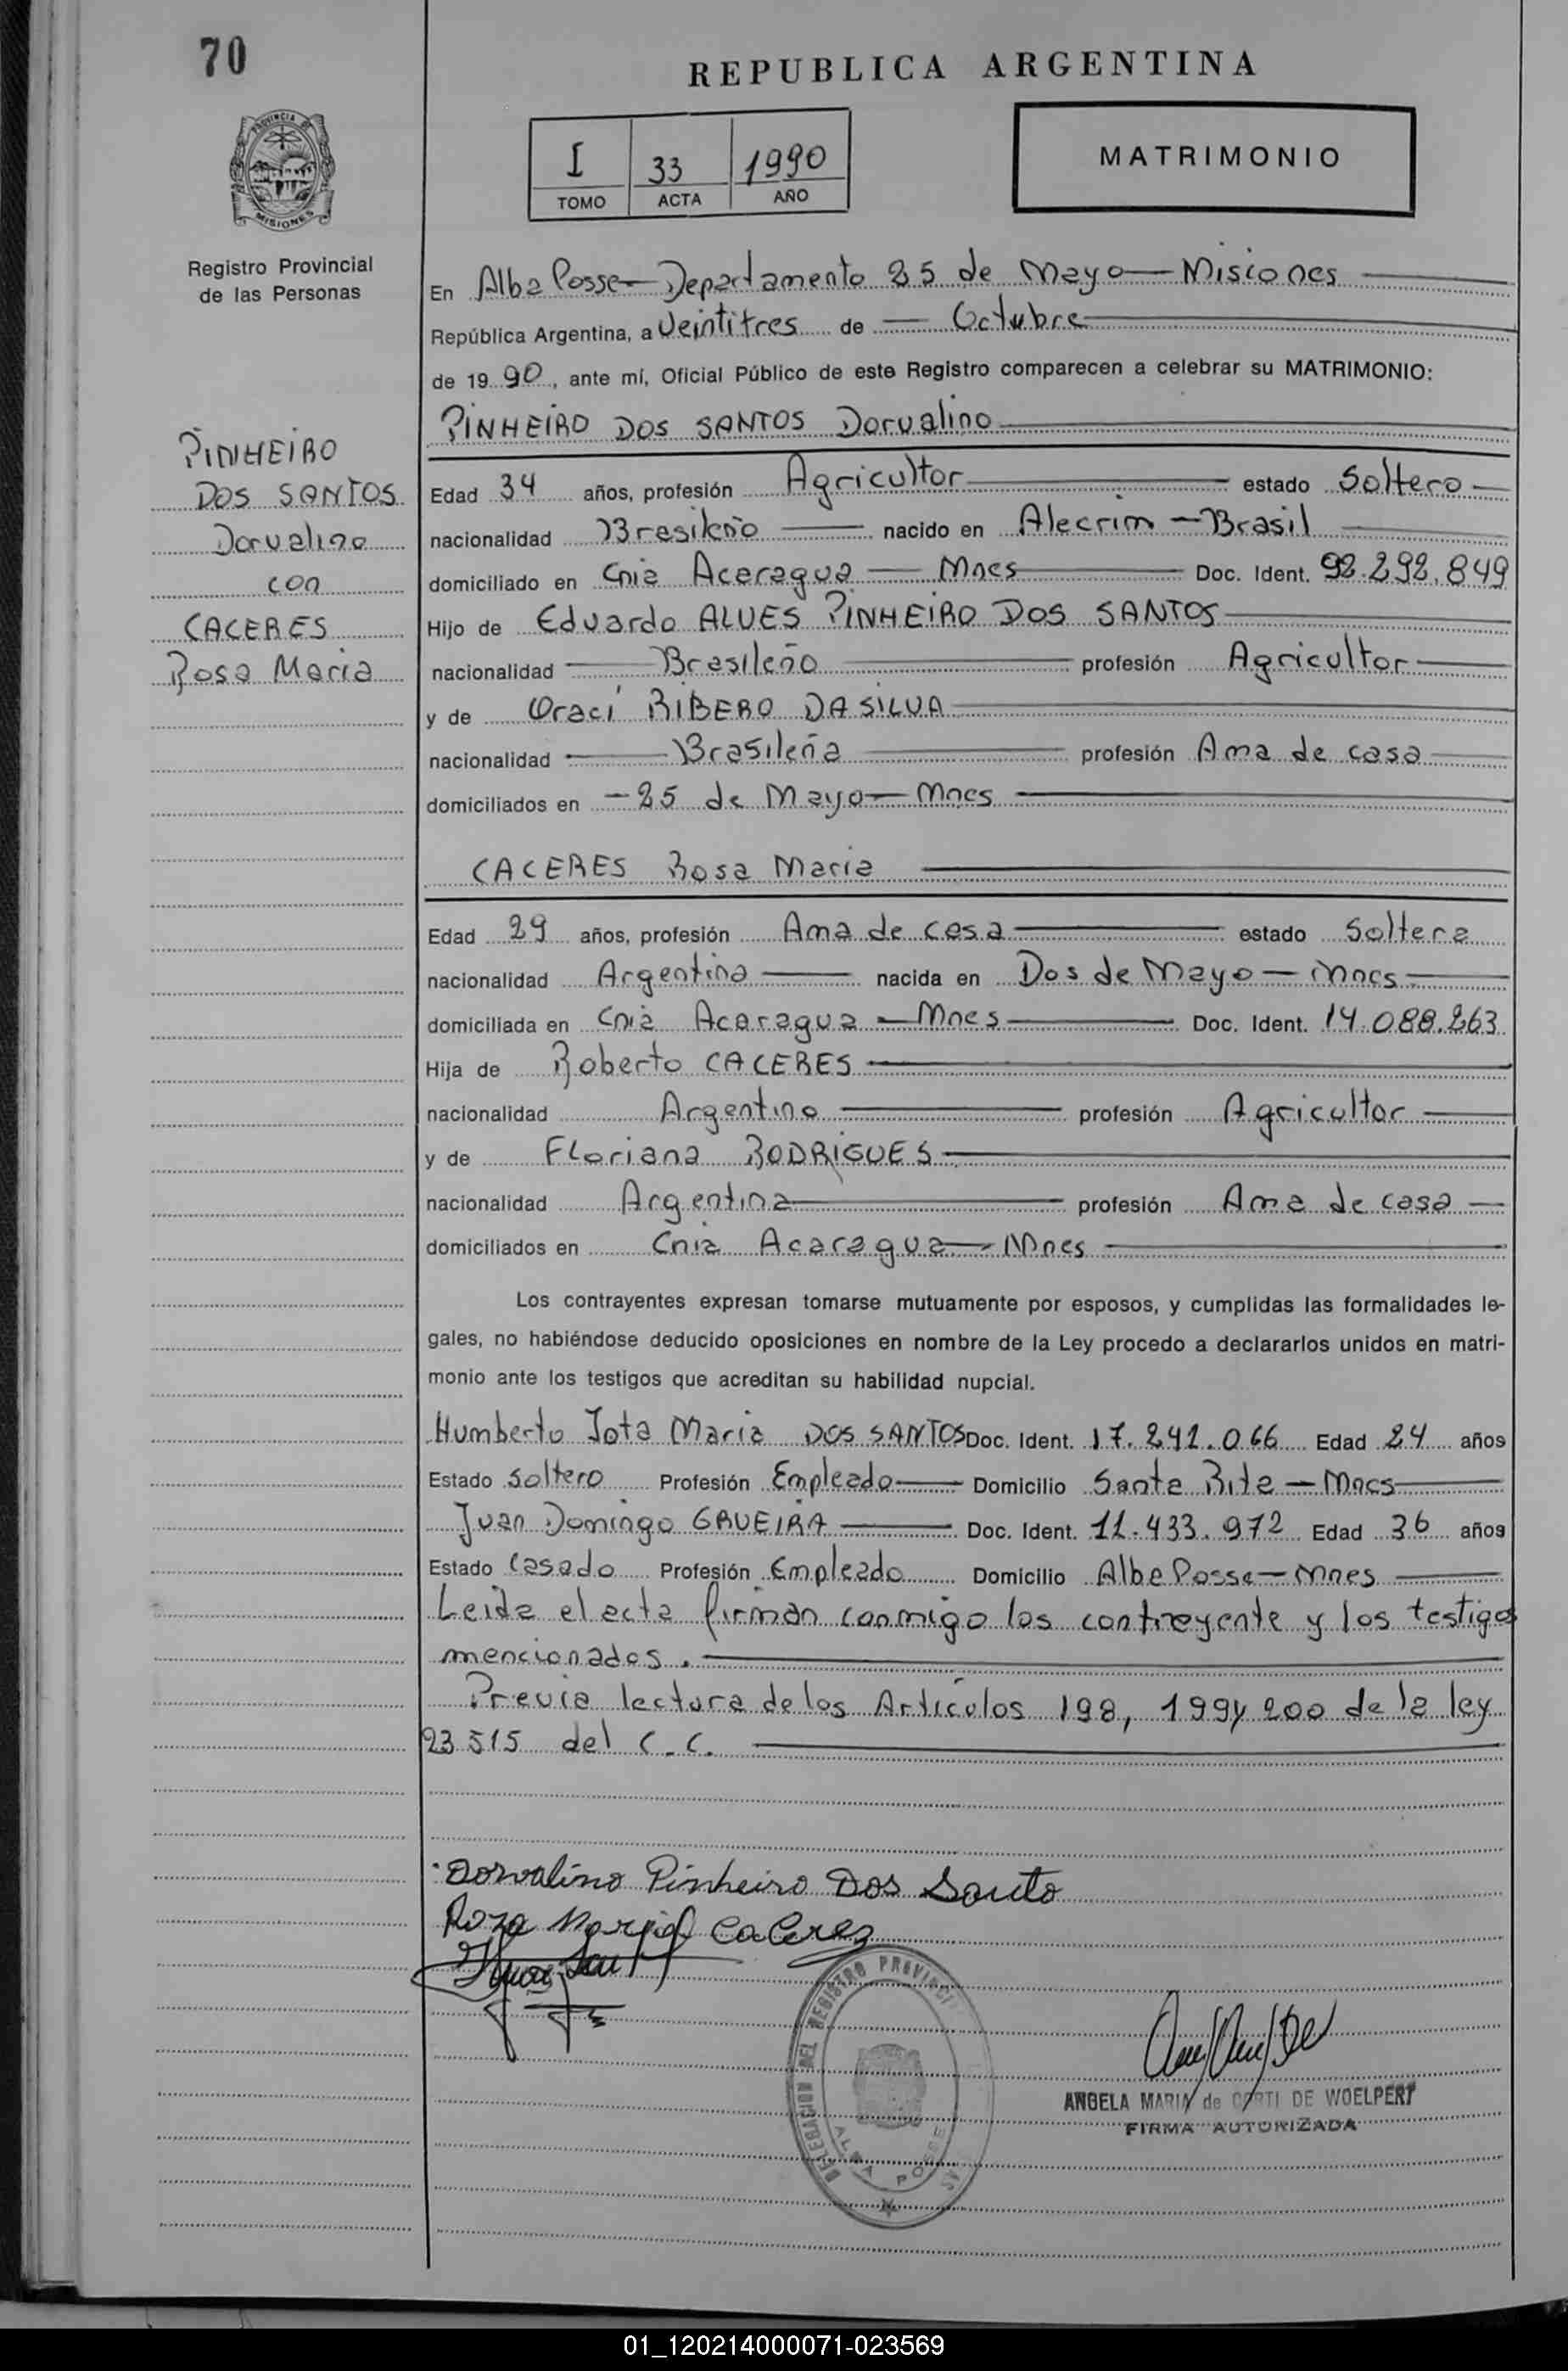 70
REPUBLICA ARGENTINA
PROVINCIA DE
MISIONES
I 33 1990
TOMO ACTA AÑO
MATRIMONIO
Registro Provincial
de las Personas
En Alba Posse - Departamento 25 de Mayo - Misiones
República Argentina, a Veintitres de Octubre
de 1990, ante mí, Oficial Público de este Registro comparecen a celebrar su MATRIMONIO:
PINHEIRO DOS SANTOS Dorvalino
PINHEIRO
DOS SANTOS
Dorvalino
con
CACERES
Rosa Maria
Edad 34 años, profesión Agricultor estado Soltero
nacionalidad Brasileño nacido en Alecrim - Brasil
domiciliado en Cnia Acaragua - Mnes Doc. Ident. 92.292.849
Hijo de Eduardo ALVES PINHEIRO DOS SANTOS
nacionalidad Brasileño profesión Agricultor
y de Oraci RIBERO DA SILVA
nacionalidad Brasileña profesión Ama de casa
domiciliados en - 25 de Mayo - Mnes
CACERES Rosa Maria
Edad 29 años, profesión Ama de casa estado Soltera
nacionalidad Argentina nacida en Dos de Mayo - Mnes
domiciliada en Cnia Acaragua - Mnes Doc. Ident. 14.088.263
Hija de Roberto CACERES
nacionalidad Argentino profesión Agricultor
y de Floriana RODRIGUES
nacionalidad Argentina profesión Ama de casa
domiciliados en Cnia Acaragua - Mnes
Los contrayentes expresan tomarse mutuamente por esposos, y cumplidas las formalidades le-
gales, no habiéndose deducido oposiciones en nombre de la Ley procedo a declararlos unidos en matri-
monio ante los testigos que acreditan su habilidad nupcial.
Humberto Jota Maria DOS SANTOS Doc. Ident. 17.241.066 Edad 24 años
Estado Soltero Profesión Empleado Domicilio Santa Rita - Mnes
Juan Domingo GAVEIRA Doc. Ident. 11.433.972 Edad 36 años
Estado Casado Profesión Empleado Domicilio Alba Posse - Mnes
Leida el acta firman conmigo los contrayente y los testigos
mencionados.
Previa lectura de los Artículos 198, 199 y 200 de la ley
23515 del C.C.
Dorvalino Pinheiro Dos Santo
Roza Maria Cacerez
DELEGACION DEL REGISTRO PROVINCIAL
ALBA POSSE
ANGELA MARIA de CORTI DE WOELPERT
FIRMA AUTORIZADA
01_120214000071-023569